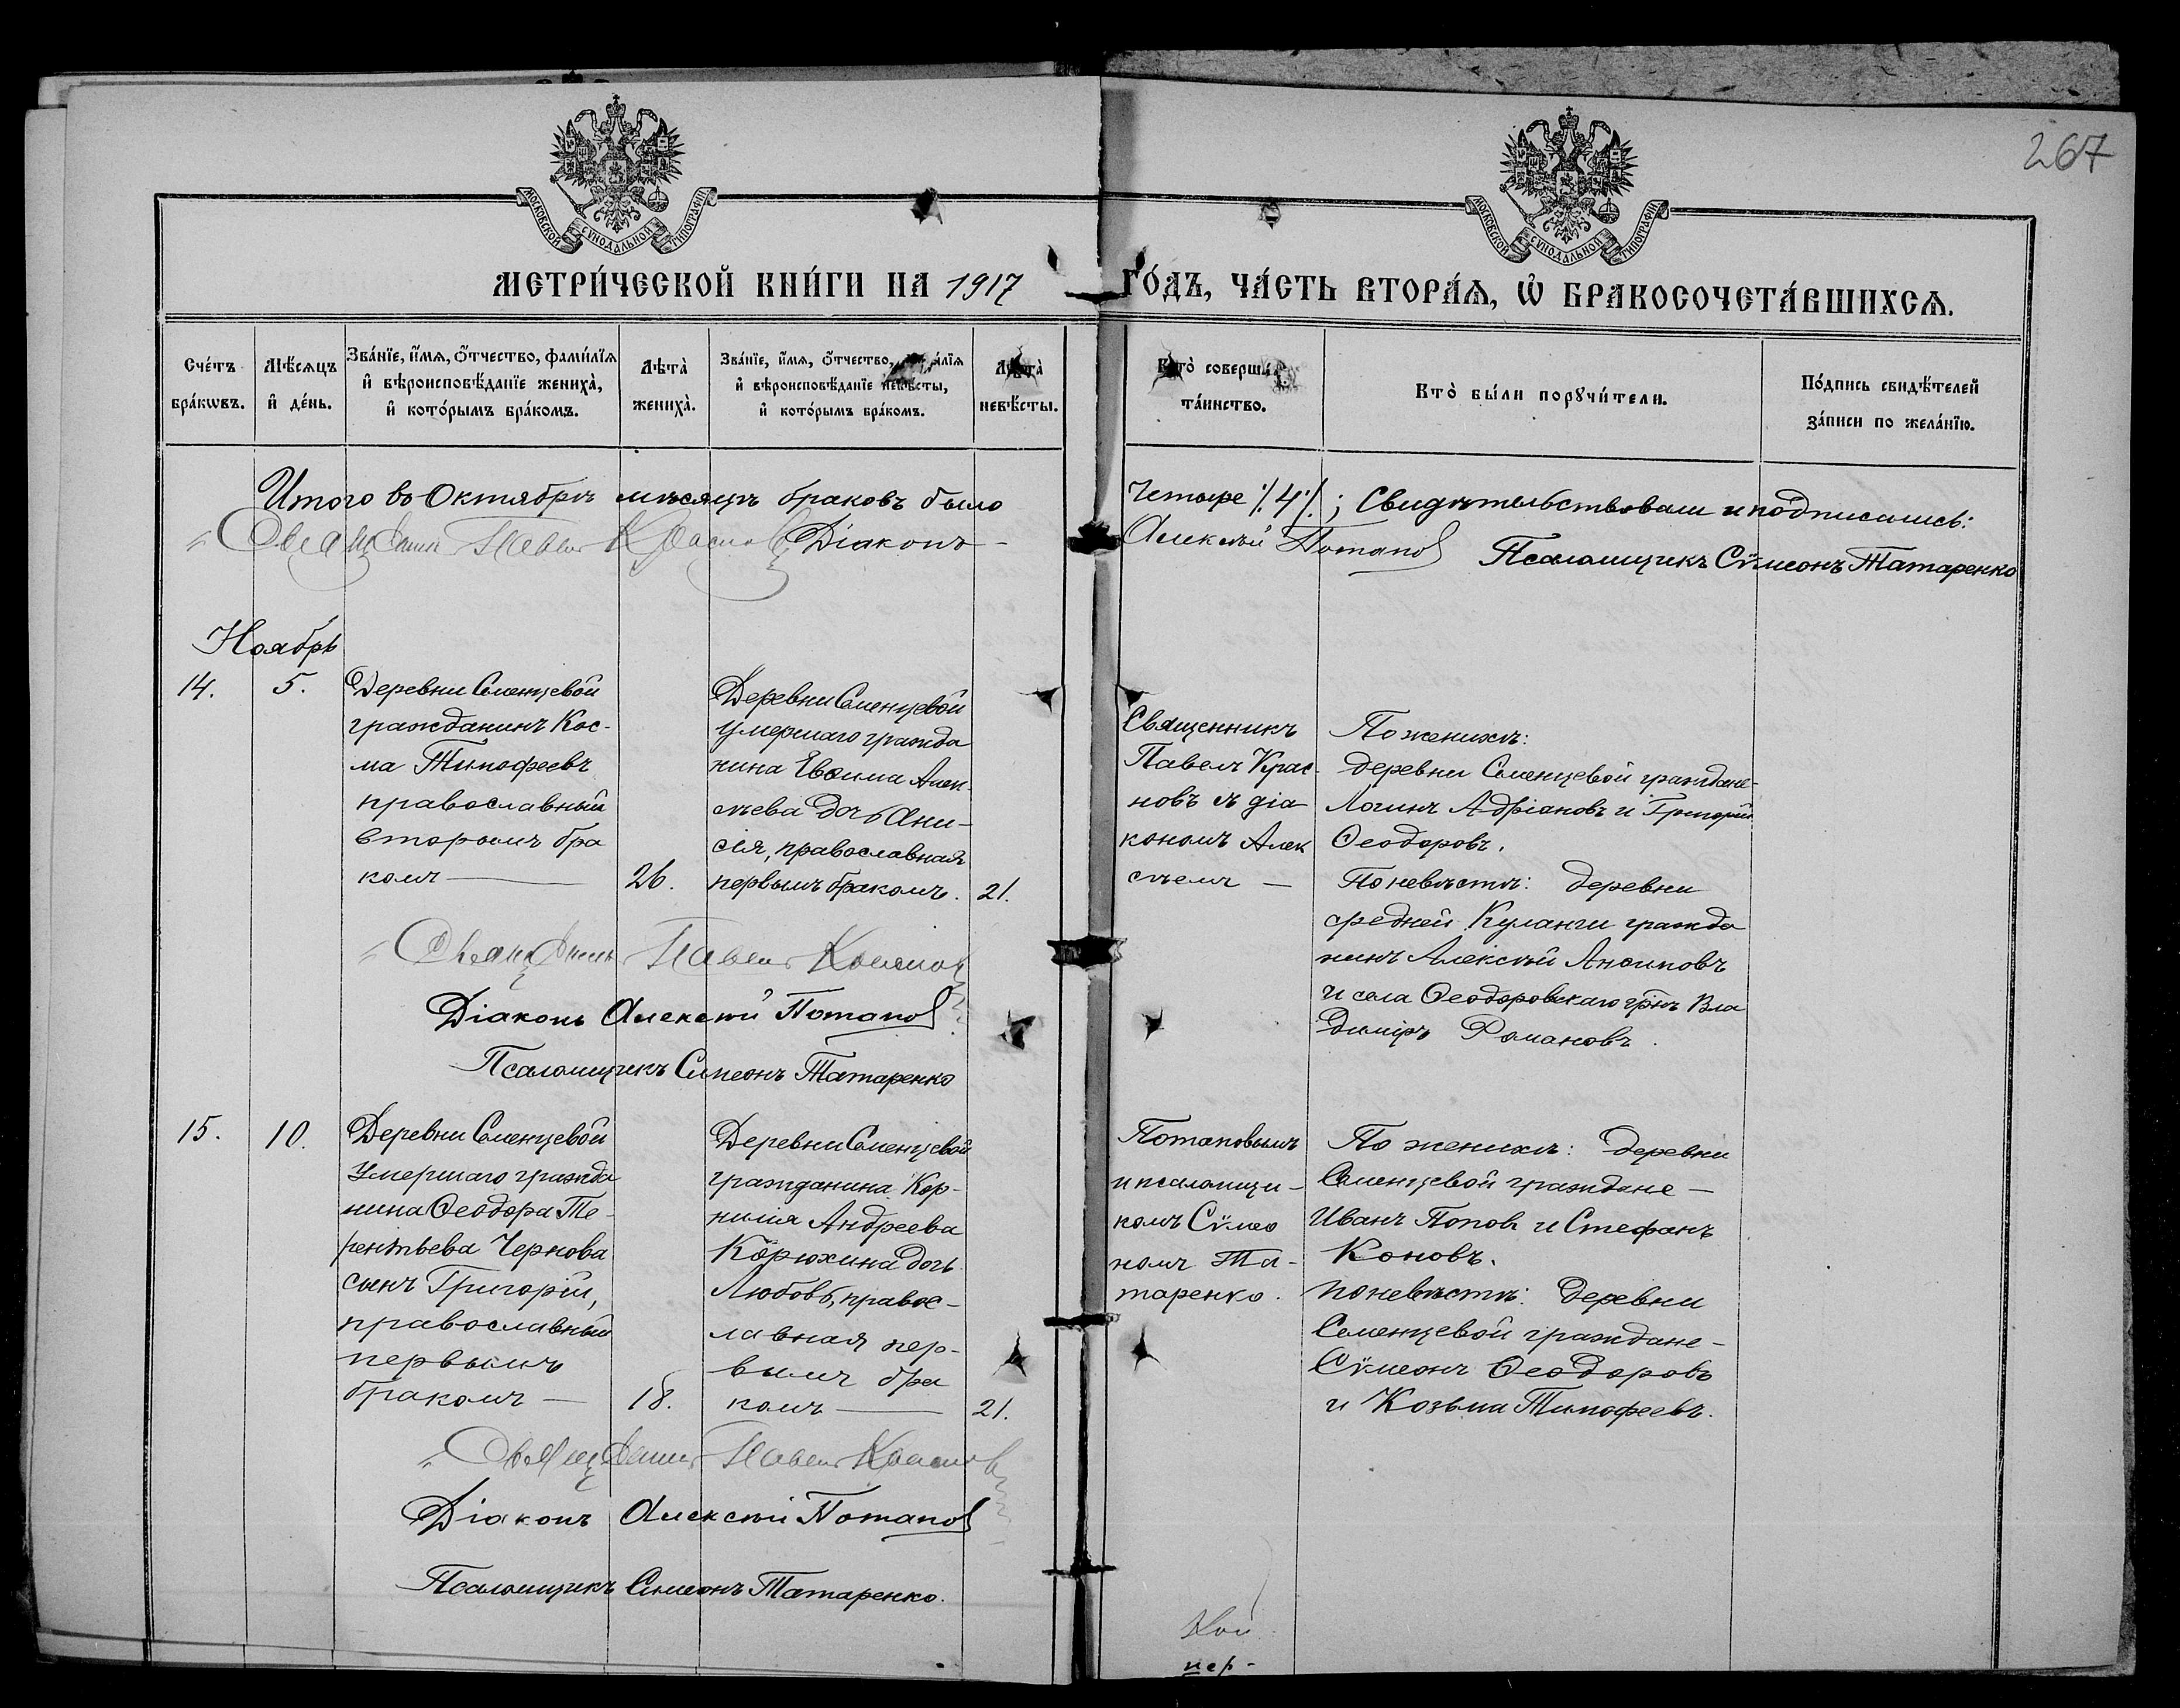 267
МОСКОВСКОЙ СѴНОДАЛЬНОЙ ТИПОГРАФІИ
МОСКОВСКОЙ СѴНОДАЛЬНОЙ ТИПОГРАФІИ
МЕТРИ́ЧЕСКОЙ КНИ́ГИ НА 1917
ГО́ДЪ, ЧА́СТЬ ВТОРА́Ѧ, Ѡ҆ БРАКОСОЧЕТА́ВШИХСѦ.
Сче́тъ
бра́кѡвъ.
Мѣ́сяцъ
и҆ де́нь.
Зва́нїе, и҆́мѧ, ѻ҆́тчество, фами́лїѧ
и҆ вѣроисповѣ́данїе жениха̀,
и҆ кото́рымъ бра́комъ.
Лѣта̀
жениха̀.
Зва́нїе, и҆́мѧ, ѻ҆́тчество, фами́лїѧ
и҆ вѣроисповѣ́данїе невѣ́сты,
и҆ кото́рымъ бра́комъ.
Лѣта̀
невѣ́сты.
Кто̀ соверша́лъ
та́инство.
Кто̀ бы́ли порꙋчи́тели.
По́дпись свидѣ́телей
за́писи по жела́нїю.
Итого въ Октябрѣ мѣсяцѣ браковъ было
Четыре ./.4./.; Свидѣтельствовали и подписались:
Священникъ Павелъ Красновъ Діаконъ
Алексѣй Потапов
Псаломщикъ Сѵмеонъ Татаренко
Ноябрь
14.
5.
Деревни Семенцевой
гражданинъ Кос-
ма Тимофеевъ
православный
вторымъ бра
комъ —
26.
Деревни Семенцевой
умершаго гражда
нина Евѳима Алек-
сѣева дочь Ани-
сія, православная
первымъ бракомъ.
21.
Священникъ
Павелъ Крас-
новъ съ діа
кономъ Алек
сѣемъ —
По женихѣ:
деревни Семенцевой граждане-
Логинъ Адріановъ и Григорій
Ѳеодоровъ.
По невѣстѣ: деревни
средней Куланги гражда
нинъ Алексѣй Ансимовъ
и села Ѳеодоровскаго гр̃нъ Вла
диміръ Романовъ.
Священникъ Павелъ Красновъ
Діаконъ Алексѣй Потапов
Псаломщикъ Симеонъ Татаренко
15.
10.
Деревни Семенцевой
умершаго гражда
нина Ѳеодора Те-
рентьева Чернова
сынъ Григорій,
православный
первымъ
бракомъ —
18.
Деревни Семенцевой
гражданина Кор-
нилія Андреева
Корюхина дочь
Любовь, правос-
лавная пер-
вымъ бра
комъ —
21.
Потаповымъ
и псаломщи-
комъ Сѵмео
номъ Та-
таренко.
По женихѣ: деревни
Семенцевой граждане —
Иванъ Поповъ и Стефанъ
Коновъ.
по невѣстѣ: деревни
Семенцевой граждане —
Сѵмеонъ Ѳеодоровъ
и Козьма Тимофеевъ.
Священникъ Павелъ Красновъ
Діаконъ Алексѣй Потапов
Псаломщикъ Симеонъ Татаренко.
пер-